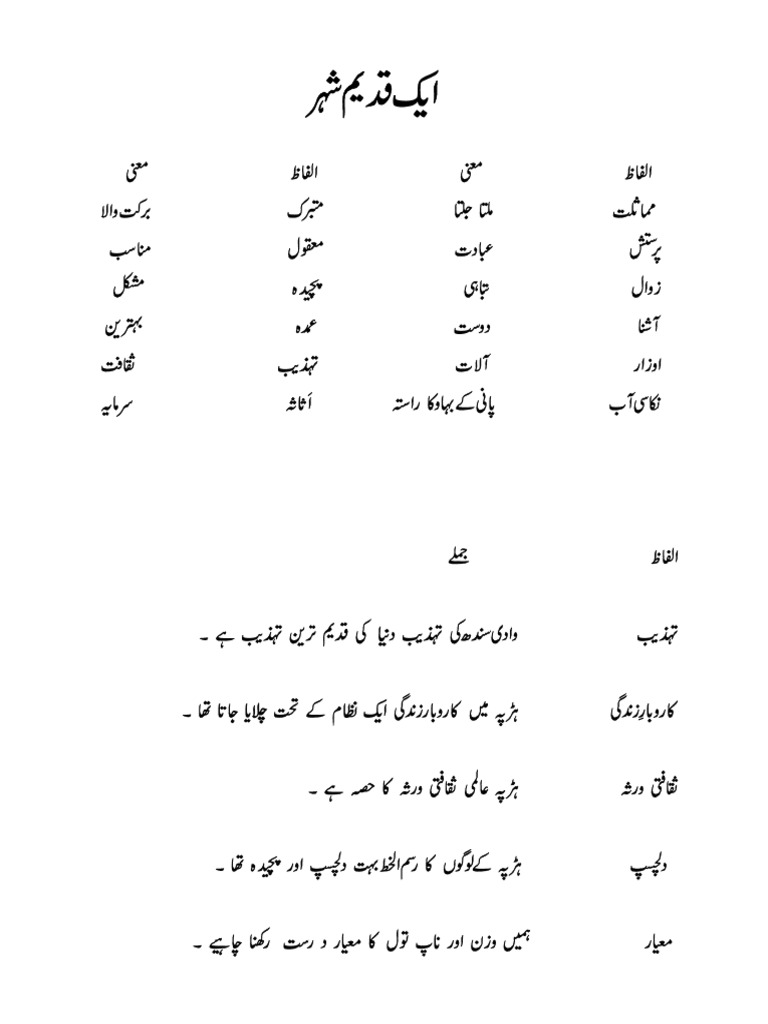 ایک قدیم شہر
الفاظ معنی الفاظ معنی
مماثلت ملتا جلتا متبرک برکت والا
پرستش عبادت معقول مناسب
زوال تباہی پیچیدہ مشکل
آشنا دوست عمدہ بہترین
اوزار آلات تہذیب ثقافت
نکاسی آب پانی کے بہاو کا راستہ اَثاثہ سرمایہ
الفاظ جملے
تہذیب وادی سندھ کی تہذیب دنیا کی قدیم ترین تہذیب ہے ۔
کاروبارِزندگی ہڑپہ میں کاروبارزندگی ایک نظام کے تحت چلایا جاتا تھا ۔
ثقافتی ورثہ ہڑپہ عالمی ثقافتی ورثہ کا حصہ ہے ۔
دلچسپ ہڑپہ کے لوگوں کا رسم الخط بہت دلچسپ اور پیچیدہ تھا ۔
معیار ہمیں وزن اور ناپ تول کا معیار د رست رکھنا چاہیے ۔